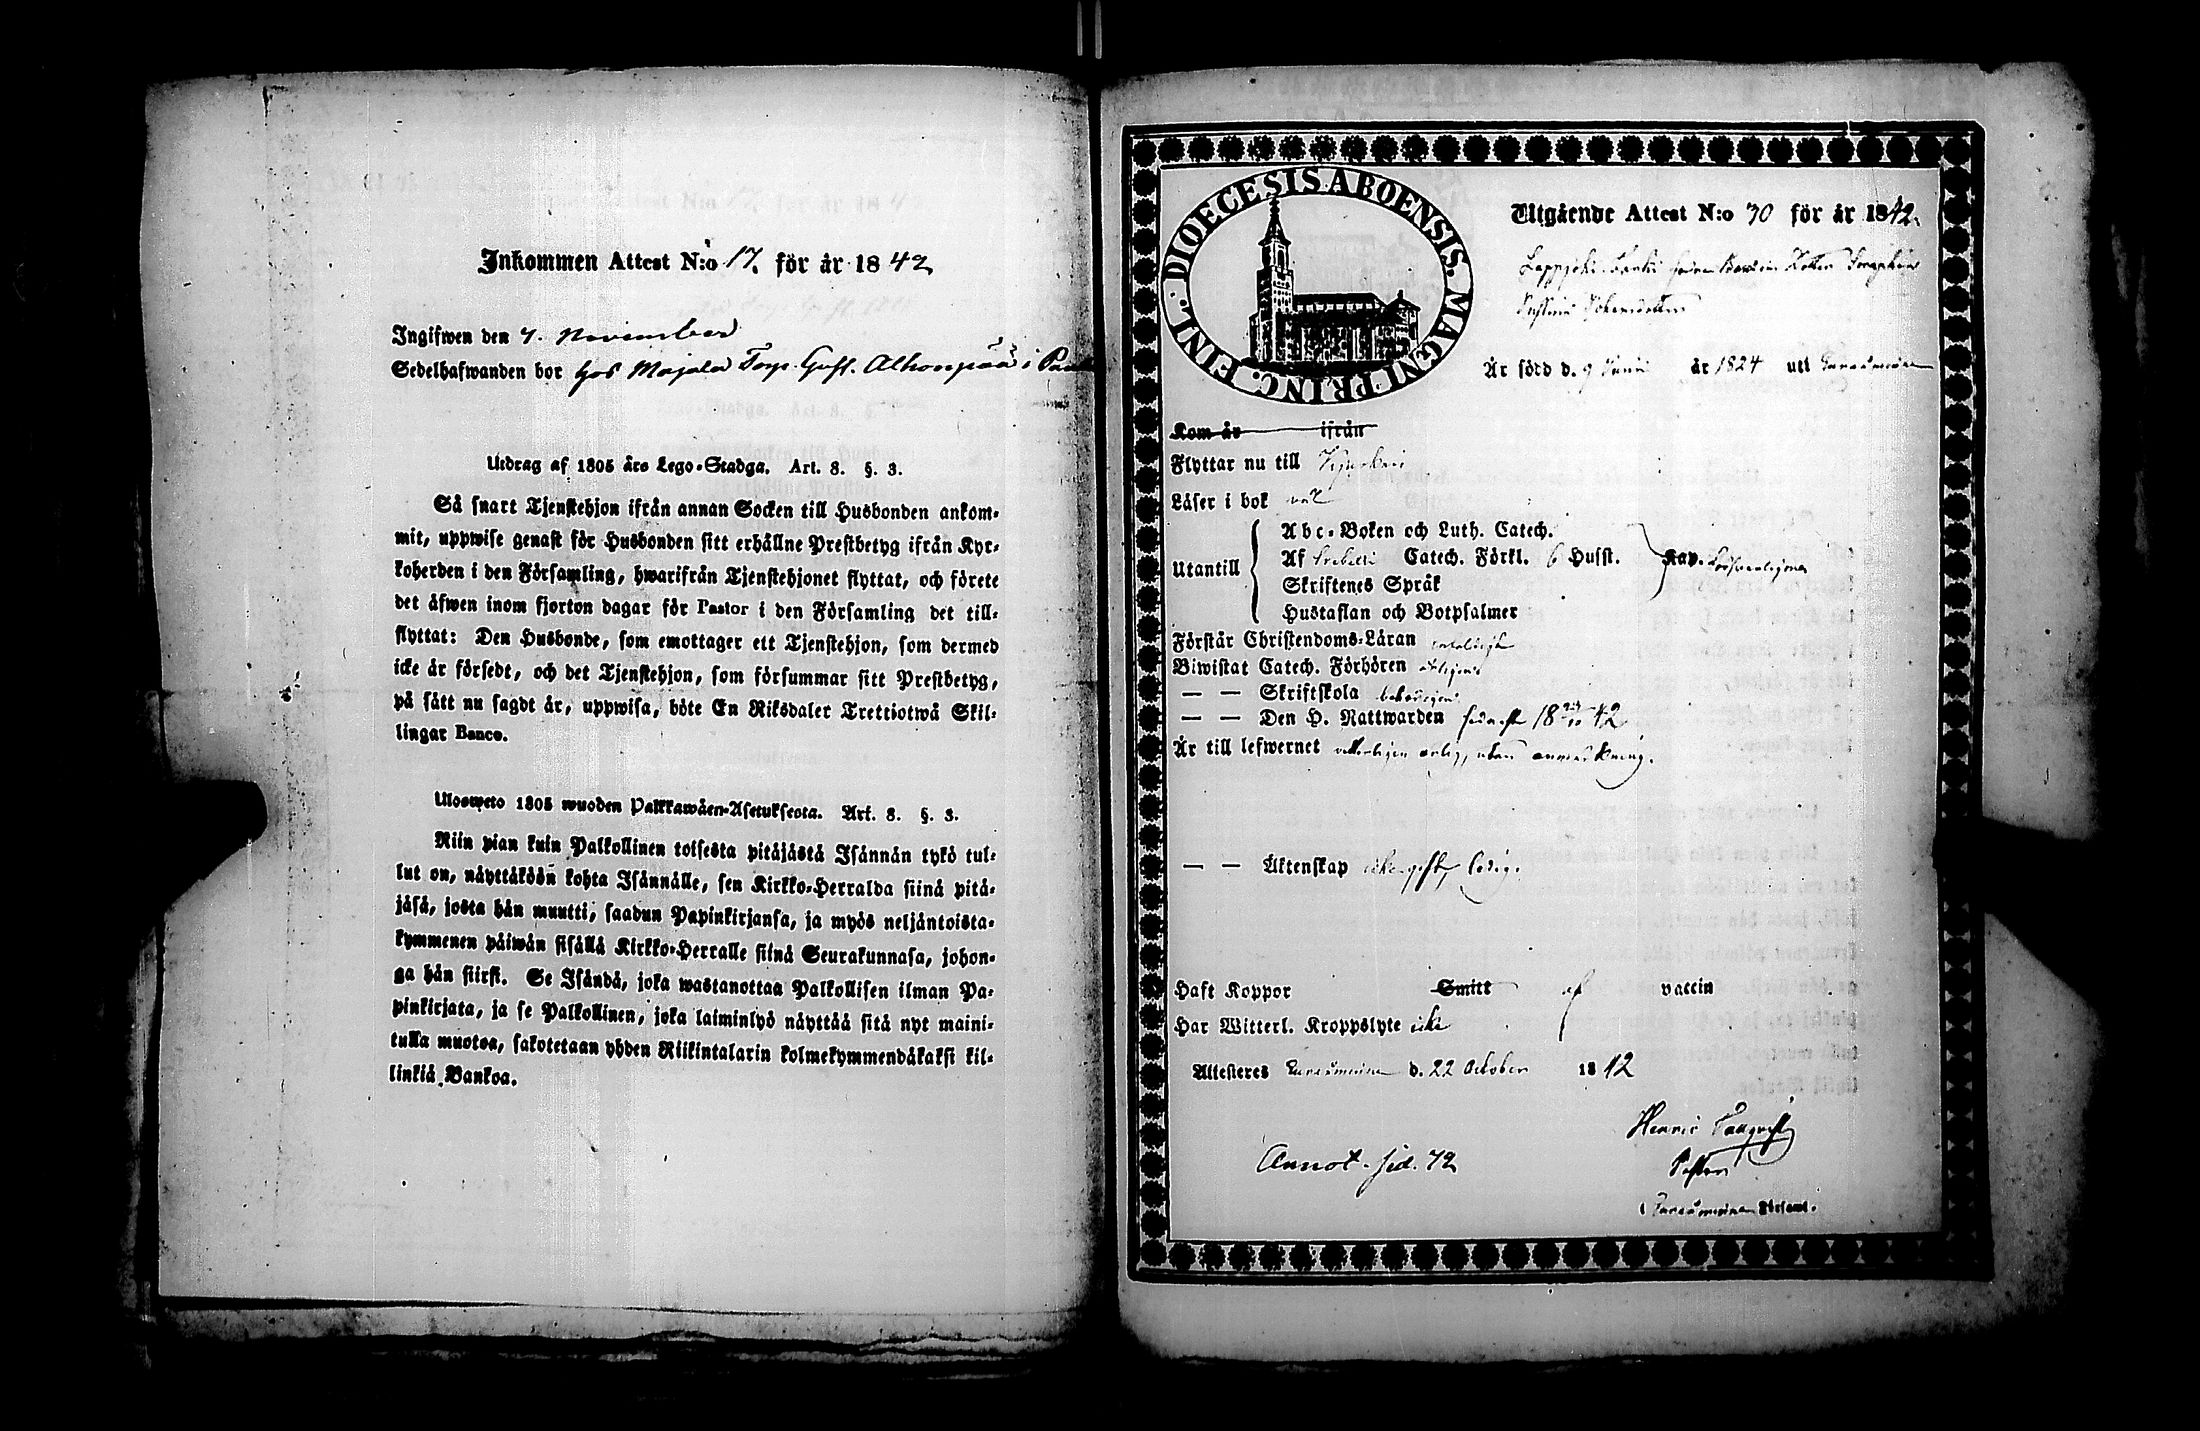 Inkommen Attest N:o 17. för år 1842
Ingifwen den 7. November
Sedelhafwanden bor hos Majala Torp. Gust. Alhonpää i
Utdrag af 1805 års Lego-Stadga. Art. 8. §. 3.
Så snart Tjenstehjon ifrån annan Socken till Husbonden ankom-
mit, uppwise genast för Husbonden sitt erhållne Prestbetyg ifrån Kyr-
koherden i den Församling, hwarifrån Tjenstehjonet flyttat, och förete
det äfwen inom fjorton dagar för Pastor i den Församling det till-
flyttat: Den Husbonde, som emottager ett Tjenstehjon, som dermed
icke är försedt, och det Tjenstehjon, som försummar sitt Prestbetyg,
på sätt nu sagdt är, uppwisa, böte En Riksdaler Trettiotwå Skil-
lingar Banco.
Ulosweto 1805 wuoden Palkkawäen-Asetuksesta. Art. 8. §. 3.
Niin pian kuin Palkollinen toisesta pitäjästä Isännän tykö tul-
lut on, näyttäköön kohta Isännälle, sen Kirkko-Herralda siinä pitä-
jäsä, josta hän muutti, saadun Papinkirjansa, ja myös neljäntoista-
kymmenen päiwän sisällä Kirkko-Herralle siinä Seurakunnasa, johon-
ga hän siirsi. Se Isändä, joka wastanottaa Palkollisen ilman Pa-
pinkirjata, ja se Palkollinen, joka laiminlyö näyttää sitä nyt maini-
tulla muotoa, sakotetaan yhden Riikintalarin kolmekymmendäkaksi kil-
lingiä Bankoa.
DIOECESIS ABOENSIS. MAGNI PRINC. FINL.
Utgående Attest N:o 70 för år 1842.
Är född d. 9 Junii år 1824 uti
Kom år ifrån
Flyttar nu till
Läser i bok väl
Abc-Boken och Luth. Catech.
Utantill Af Catech. Förkl. 6 Husst. Kap.
Skriftenes Språk
Hustaflan och Botpsalmer
Förstår Christendoms-Läran
Biwistat Catech. Förhören
— — Skriftskola behörigen
— — Den H. Nattwarden sednast 18 42
Är till lefwernet wetterligen ärlig, utan anmärkning.
— — Äktenskap icke gift, ledig.
Haft Koppor Smitt af vaccin
Har Witterl. Kroppslyte icke
Attesteres d. 22 October 1842
Henric
Pastor
i Församl.
Annot. sid. 72